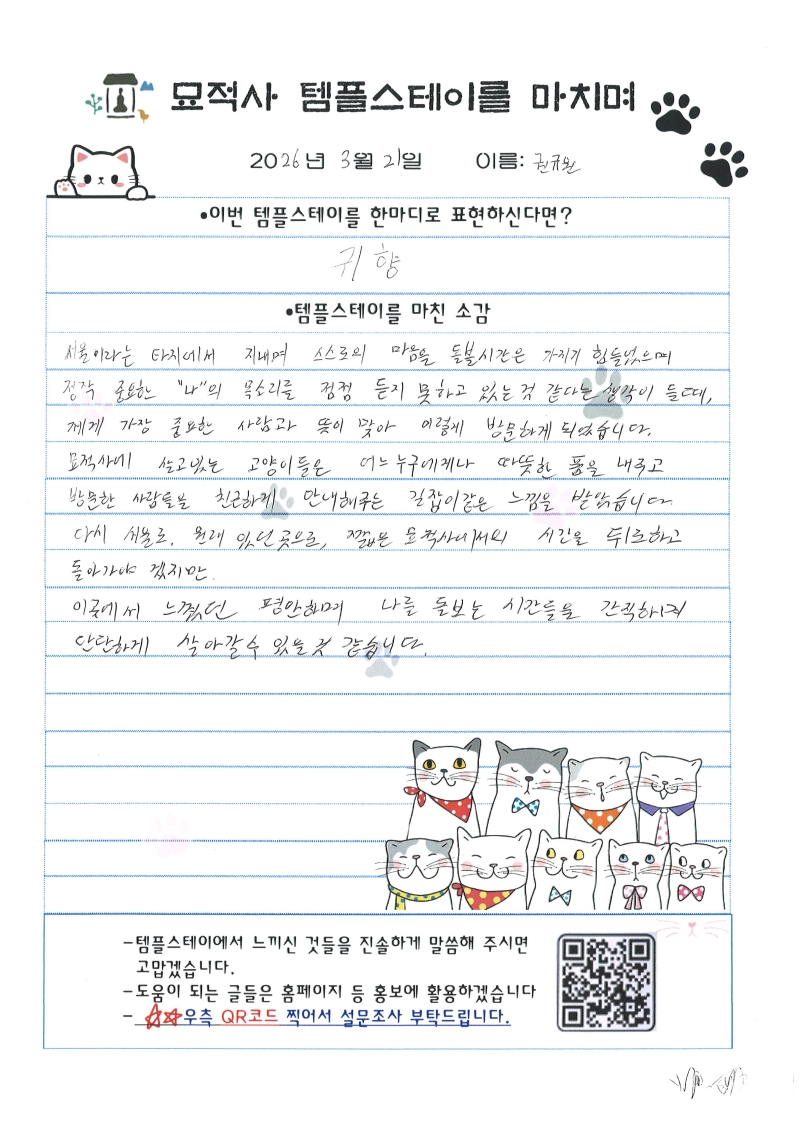 묘적사 템플스테이를 마치며
2026년 3월 21일 이름: 권규완
•이번 템플스테이를 한마디로 표현하신다면?
귀향
•템플스테이를 마친 소감
서울이라는 타지에서 지내며 스스로의 마음을 돌볼시간은 가지기 힘들었으며
정작 중요한 "나"의 목소리를 점점 듣지 못하고 있는 것 같다는 생각이 들 때,
제게 가장 중요한 사람과 뜻이 맞아 이렇게 방문하게 되었습니다.
묘적사에 살고있는 고양이들은 어느 누구에게나 따뜻한 품을 내주고
방문한 사람들을 친근하게 안내해주는 길잡이같은 느낌을 받았습니다.
다시 서울로, 원래 있던 곳으로, 짧은 묘적사에서의 시간을 뒤로하고
돌아가야 겠지만.
이곳에서 느꼈던 평안하며 나를 돌보는 시간들을 간직하며
단단하게 살아갈 수 있을 것 같습니다.
-템플스테이에서 느끼신 것들을 진솔하게 말씀해 주시면
고맙겠습니다.
-도움이 되는 글들은 홈페이지 등 홍보에 활용하겠습니다
- ☆☆우측 QR코드 찍어서 설문조사 부탁드립니다.